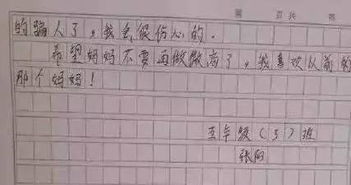 的骗人了，我会很伤心的。
希望妈妈不要再做微商了，我喜欢以前的
那个妈妈！
五年级（5）班